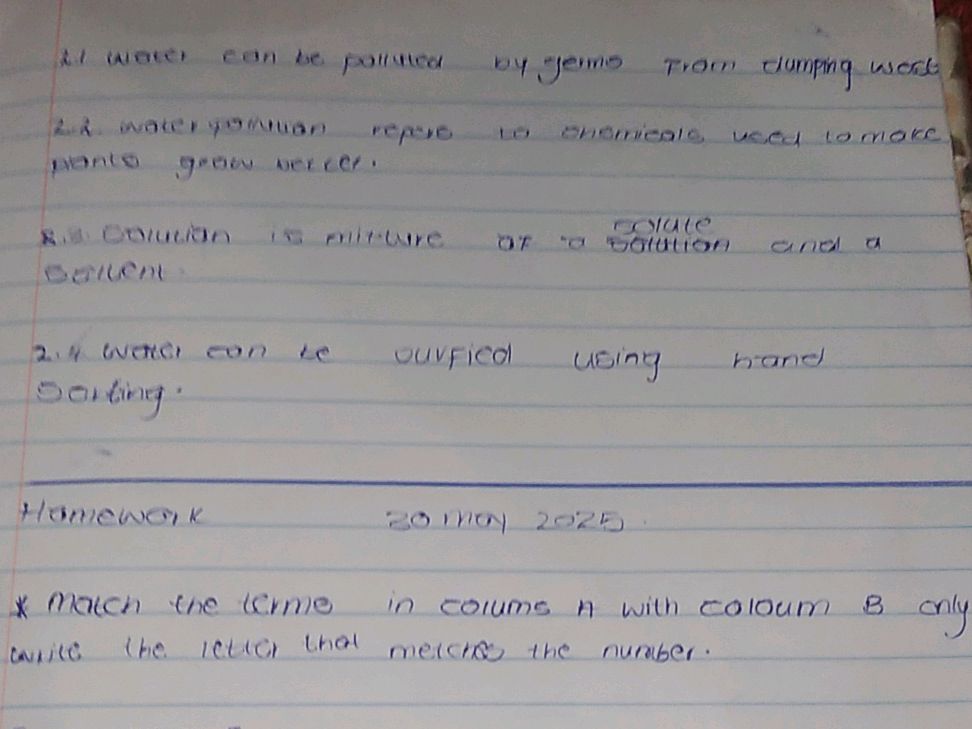 2.1 water can be polluted by germs from dumping wast
2.2. water pollution repere to chemicals used to make
plants grow better.
solute
2.3. Solution is mixture of a solution and a
Solvent.
2.4. water can be ourfied using hand
Sorting.
Homework 20 may 2025.
* Match the terms in colums A with coloum B only
write the letter that metches the number.